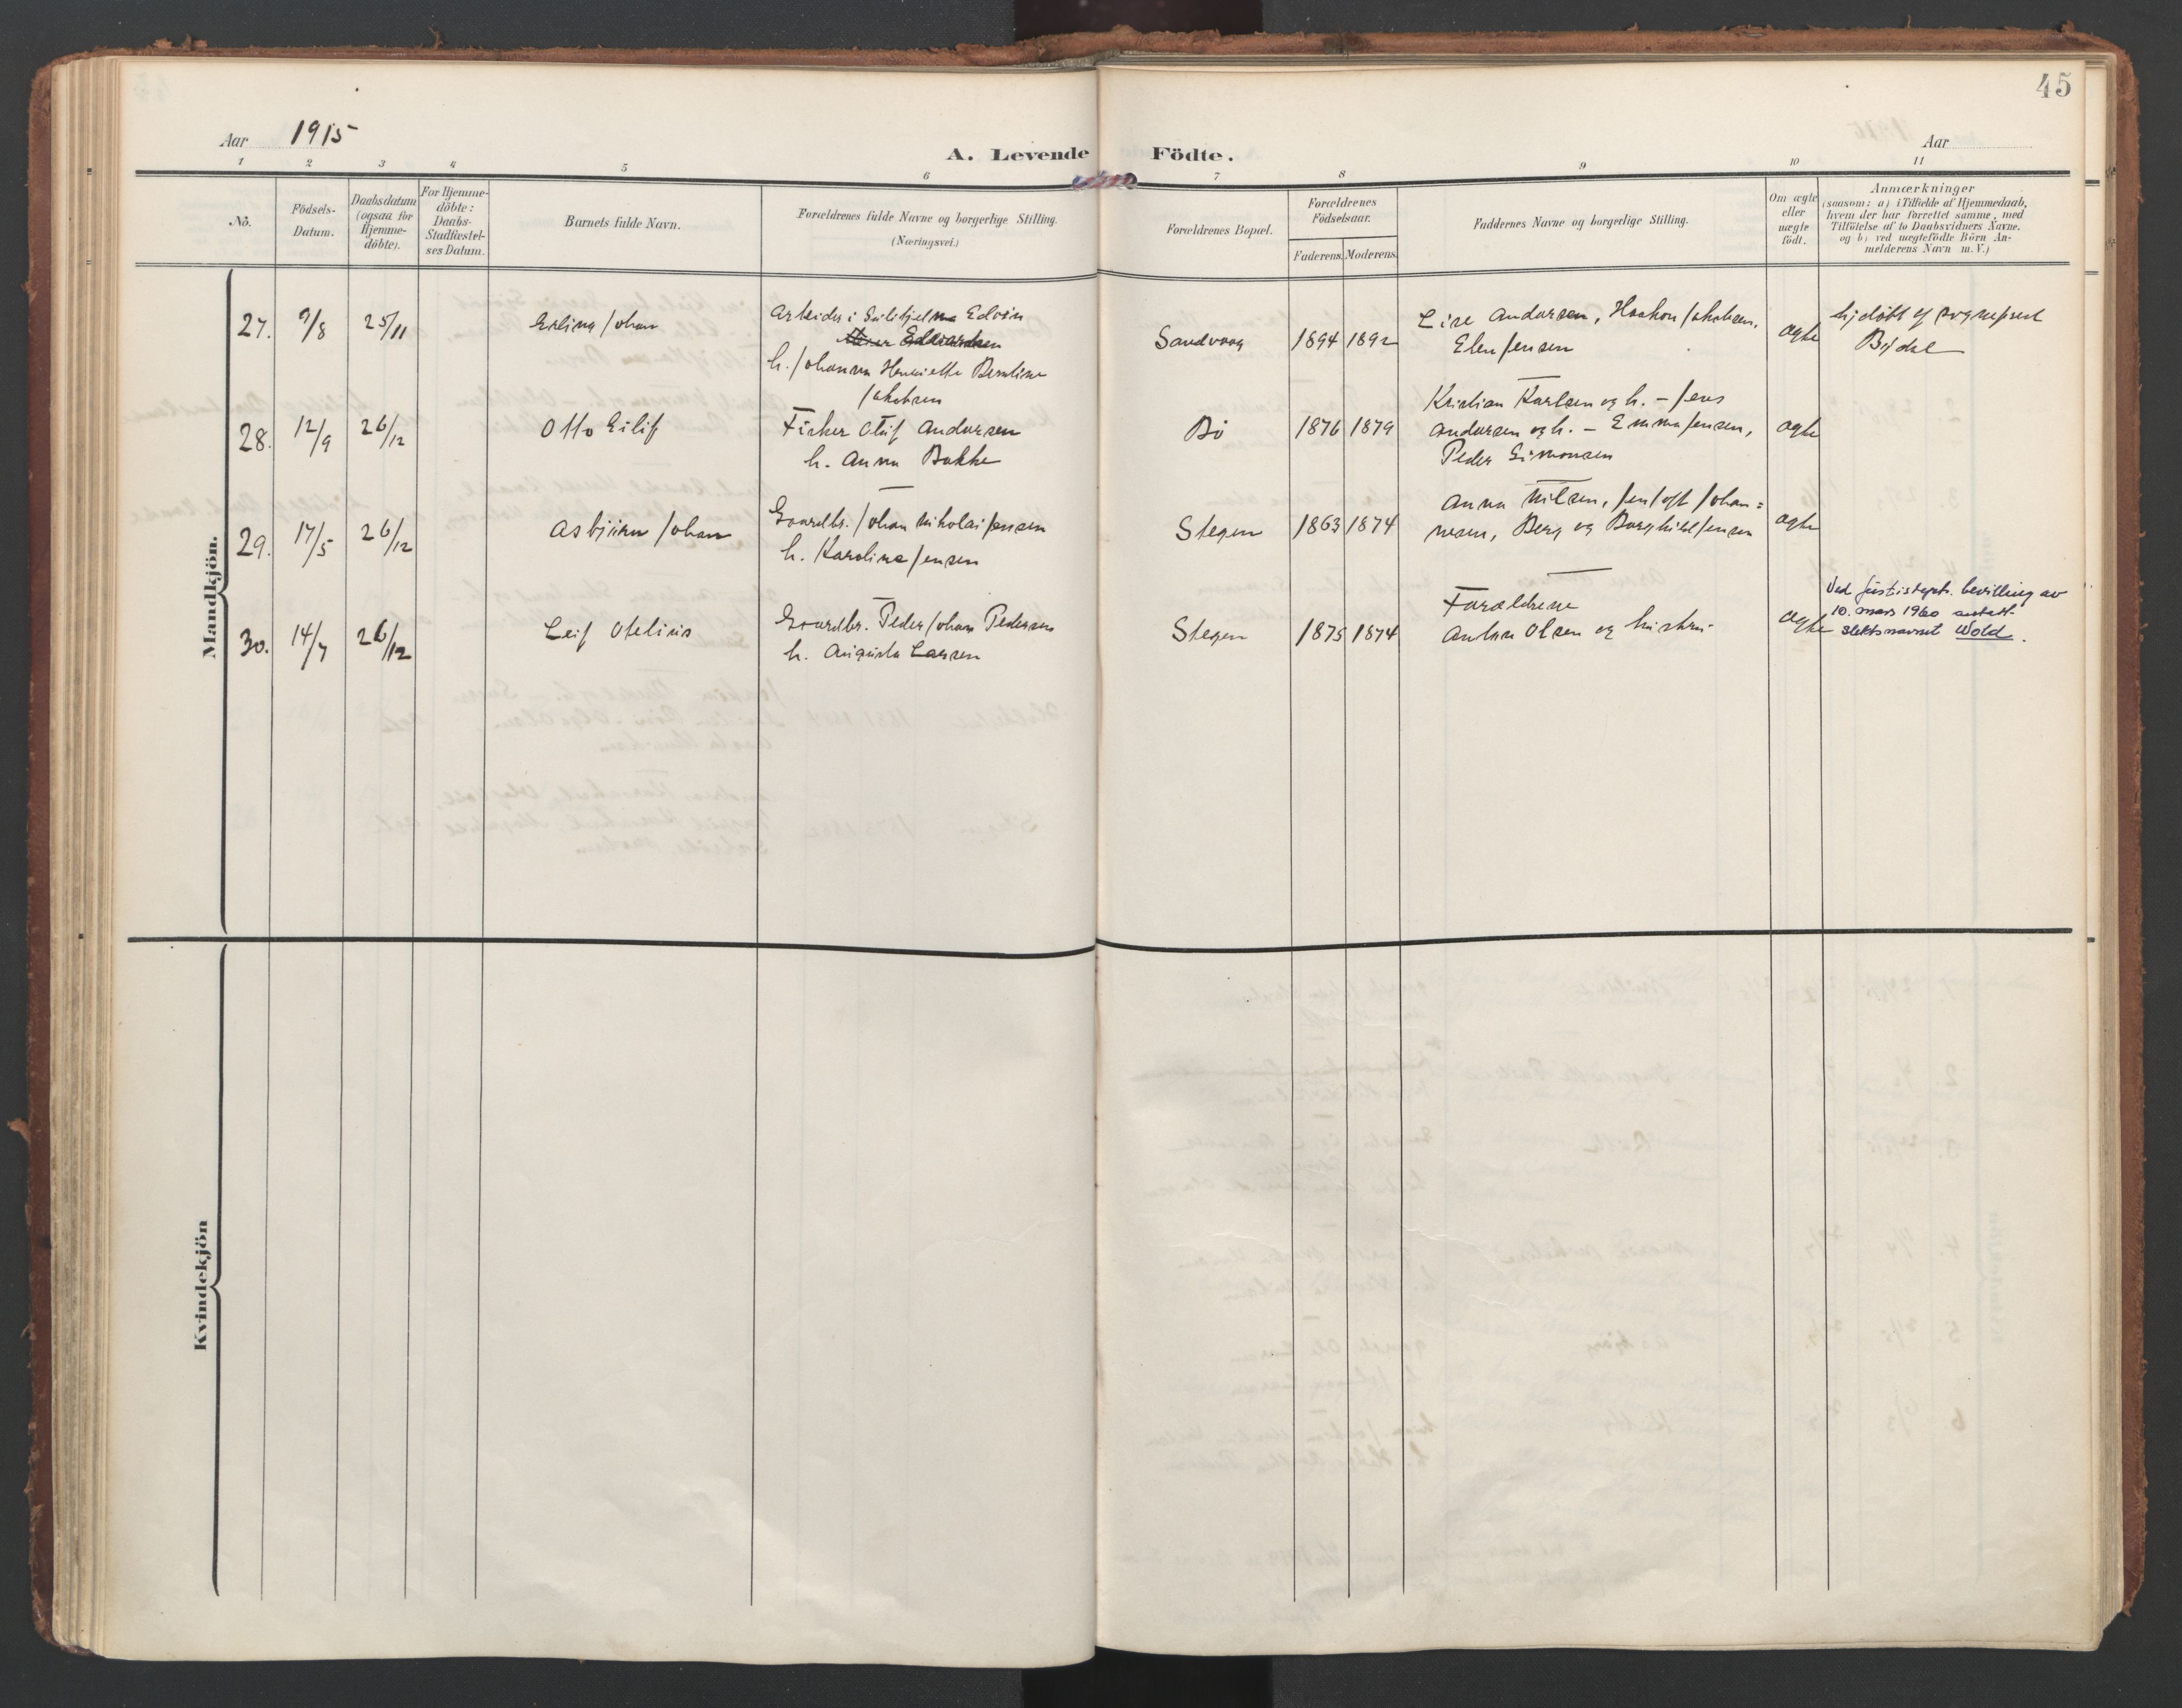 45
Aar 1915
Aar
A. Levende Födte.
1 2 3 4 5 6 7 8 9 10 11
No.
Födsels-
Datum.
Daabsdatum
(ogsaa for
Hjemme-
döbte).
For Hjemme-
döbte:
Daabs-
Stadfæstel-
ses Datum.
Barnets fulde Navn.
Forældrenes fulde Navne og borgerlige Stilling.
(Næringsvei.)
Forældrenes Bopæl.
Forældrenes
Födselsaar.
Faderens. Moderens.
Faddernes Navne og borgerlige Stilling.
Om ægte
eller
uægte
födt.
Anmærkninger
(saasom: a) i Tilfælde af Hjemmedaab,
hvem der har forrettet samme, med
Tilföielse af to Daabsvidners Navne.
og b) ved uægtefödte Börn An-
melderens Navn m. V.)
Mandkjön.
27. 9/8 25/11 Erling Johan
Arbeider i Edvin
Edvardsen
h. Johanna Henriette Berntine
Jakobsen
Sandvaag 1894 1892
Lise Andersen, Haakon Jakobsen,
Elen Jensen
ægte
hjdöbt af sogneprest
Bydal
28. 12/9 26/12 Otto Eilif
Fisker Andersen
h. Anna Bakke
Bö 1876 1879
Kristian Karlsen og h. – Jens
Andersen og h. – Emma Jensen,
Peder Simonsen
ægte
29. 17/5 26/12 Asbjörn Johan
Gaardbr. Johan Nikolai Jensen
h. Karoline Jensen
Stegen 1863 1874
Anna Nilsen, Johan=
nesen, Berg og Borghild Jensen
ægte
30. 14/7 26/12 Leif Otelius
Gaardbr. Peder Johan Pedersen
h. Augusta Larsen
Stegen 1875 1874
Forældrene
Anton Olsen og hustru
ægte
Ved Justisdepts. bevilling av
10. mars 1960 antatt
slektsnavnet Wold.
Kvindekjön